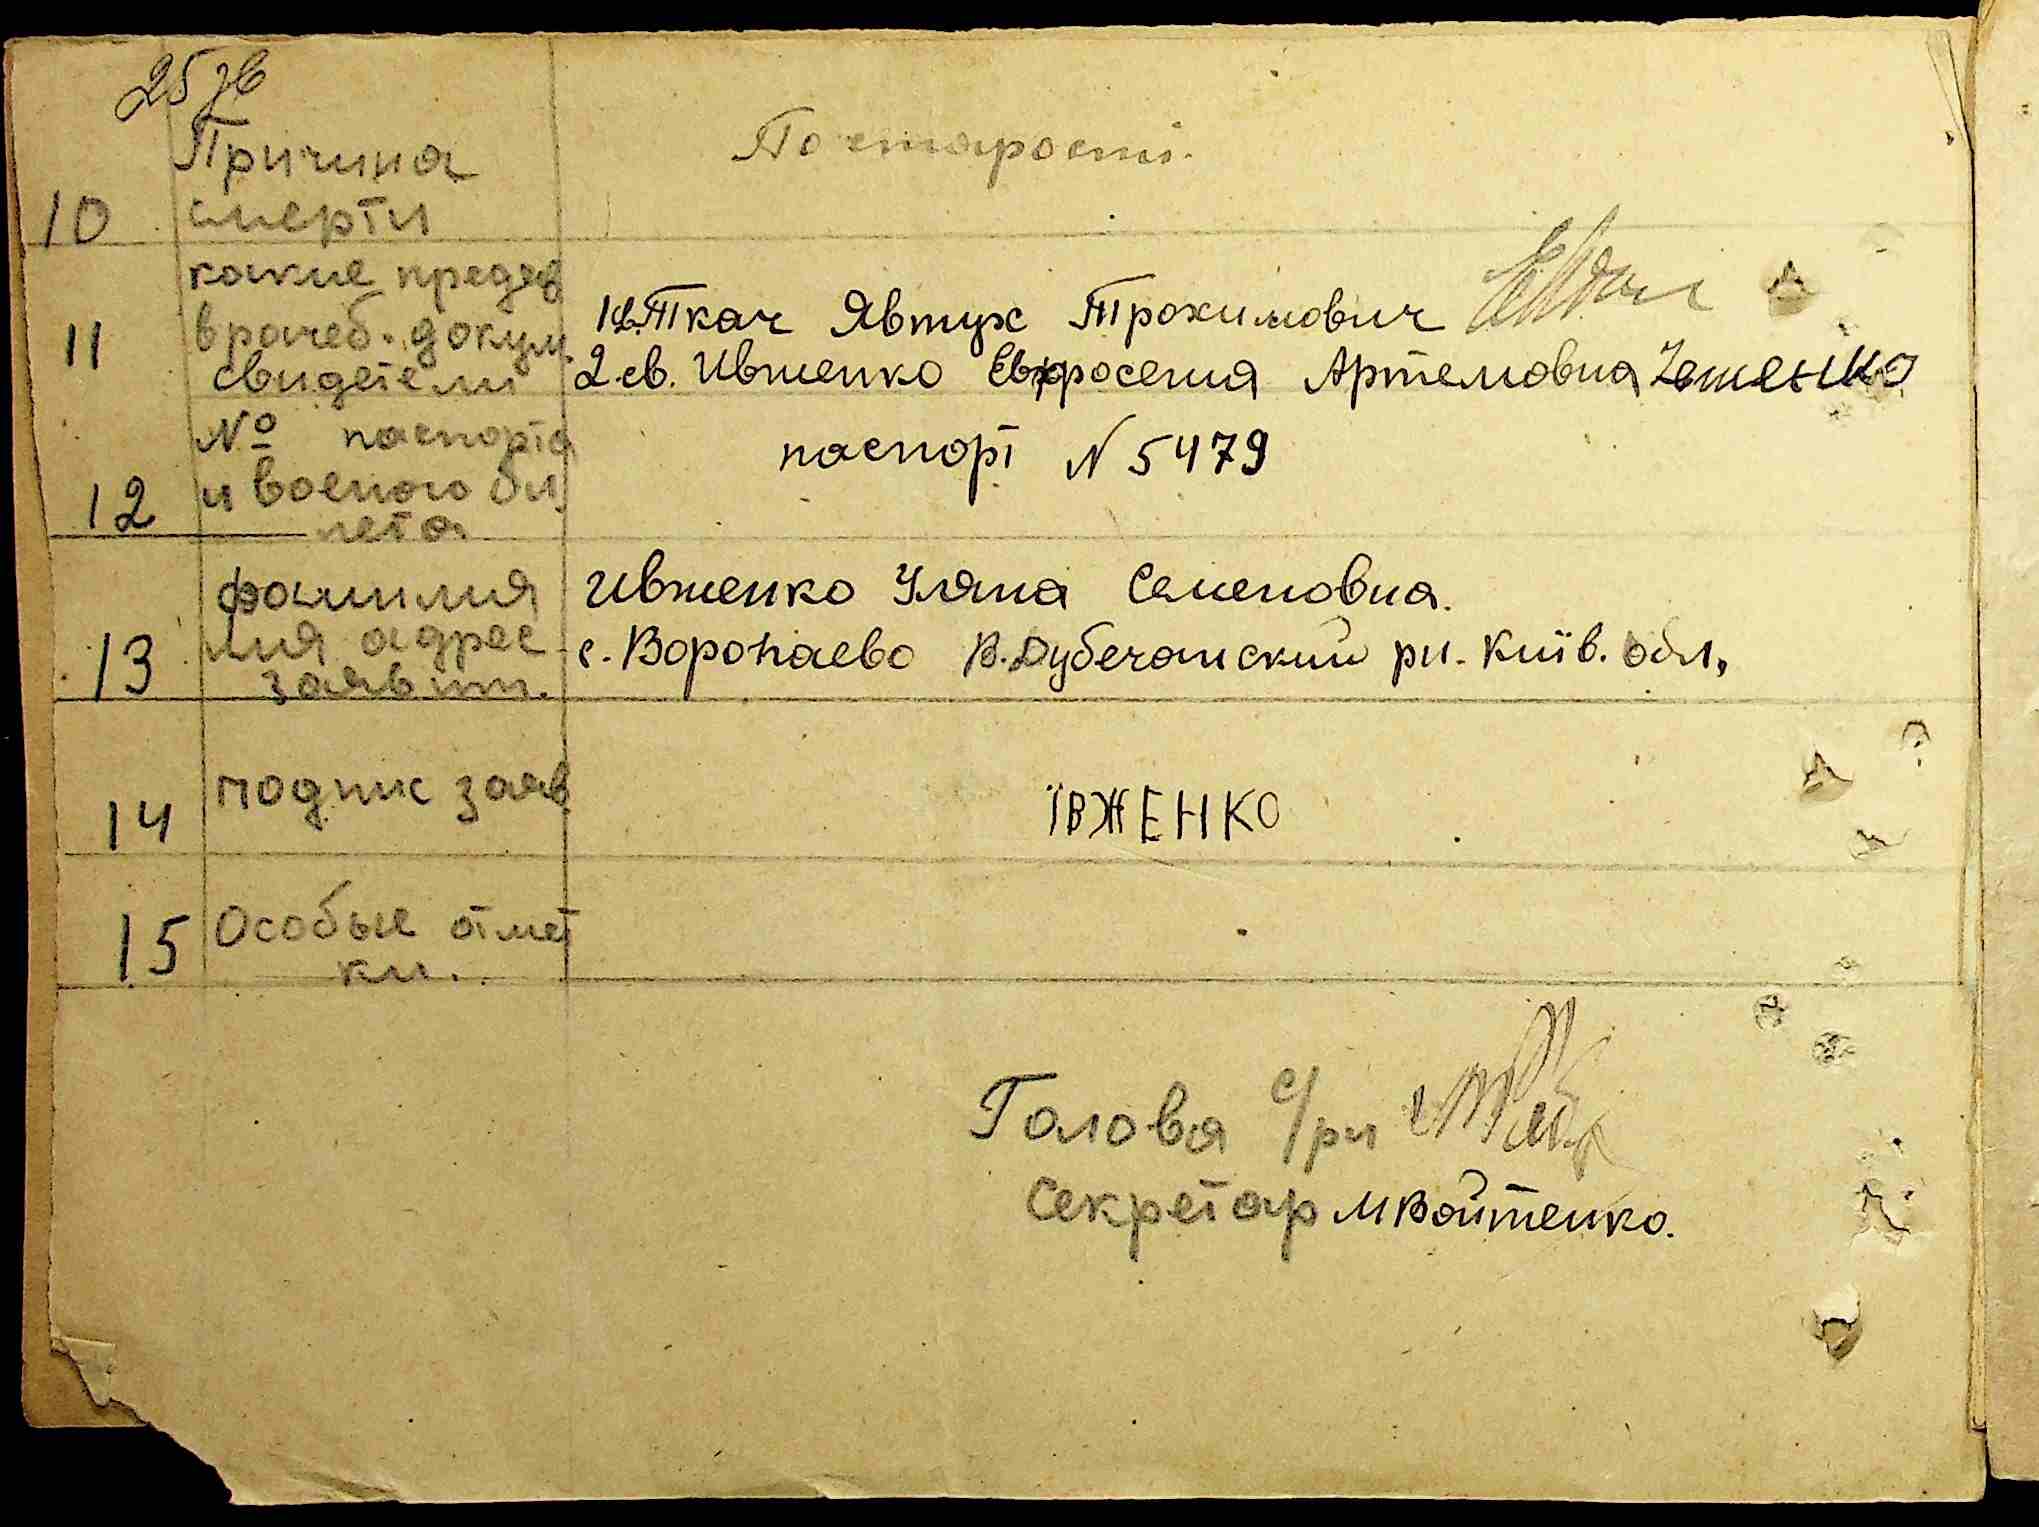 25 зв
Причина
смерти
10
По старости.
какие предъв
врачеб. докум.
свидетели
11
1 св. Ткач Явтух Трохимович
2. св. Ивженко Евфросения Артемовна
№ паспорта
и военого би
лета
12
паспорт N 5479
фамилия
лия адрес
заявит.
13
Ивженко Уляна Семеновна.
с. Воропаево В. Дубечанский рн. Київ. обл,
подпис заяв
14
ЇВЖЕНКО
Особые отмет
ки.
15
Голова с/ри
Секретар МВойтенко.